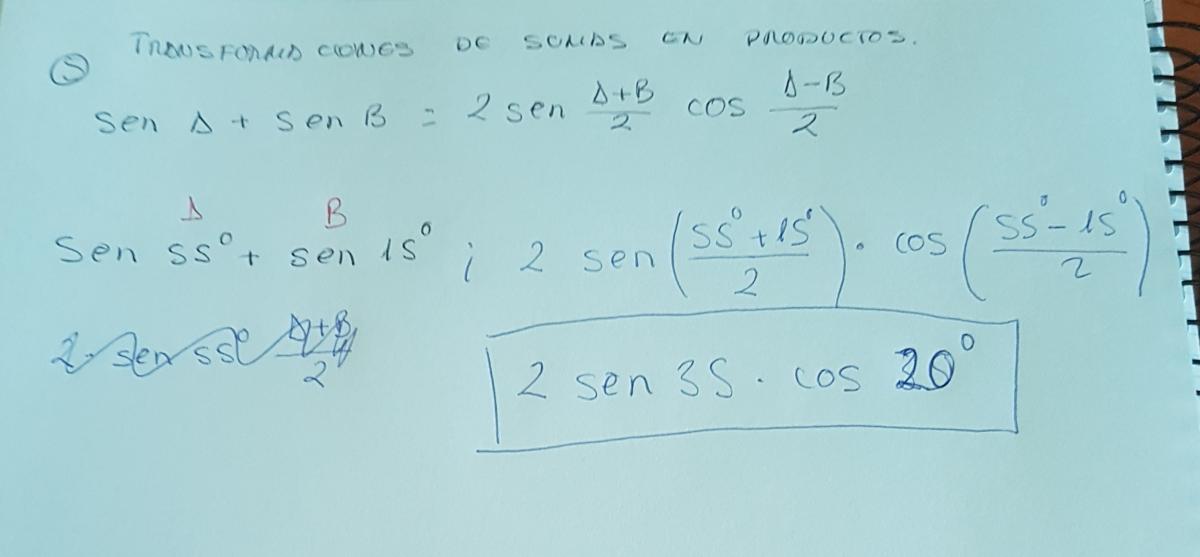 TRANSFORMACIONES DE SUMAS EN PRODUCTOS.
⑤
sen A + sen B = 2 sen (A+B)/2 cos (A-B)/2
A B
Sen 55° + sen 15° ; 2 sen (55°+15°/2) · cos (55°-15°/2)
2 · sen 55° A+B/2
2 sen 35 · cos 20°